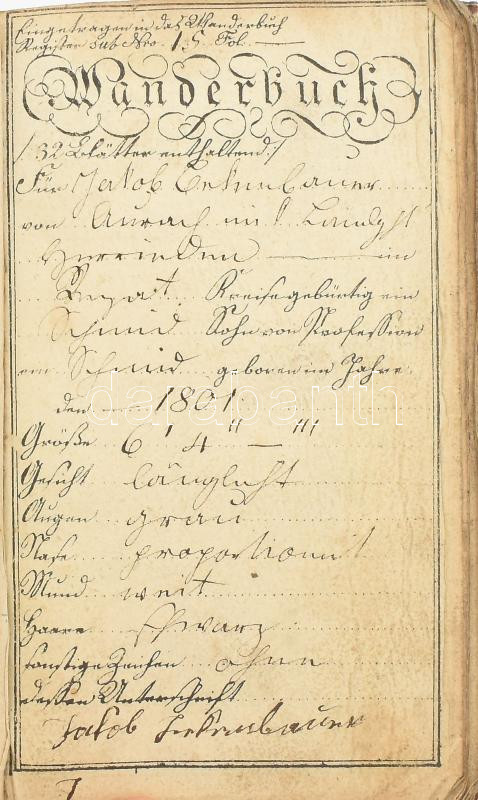 Eingetragen in das Wanderbuch
Register sub Nro. 15. Fol.
Wanderbuch
/: 32 Blätter enthaltend :/
Für Jakob
von Aurach
Herrieden — im
Rezat Kreise gebürtig ein
Schmid Sohn von Profession
ein Schmid geboren im Jahre
den — 1801.
Größe 6 ' 4 '' — '''
Gesicht länglicht
Augen grau
Nase proportionirt
Mund weit
Haare schwarz
sonstige Zeichen ohne
dessen Unterschrift
Jakob
darabanth